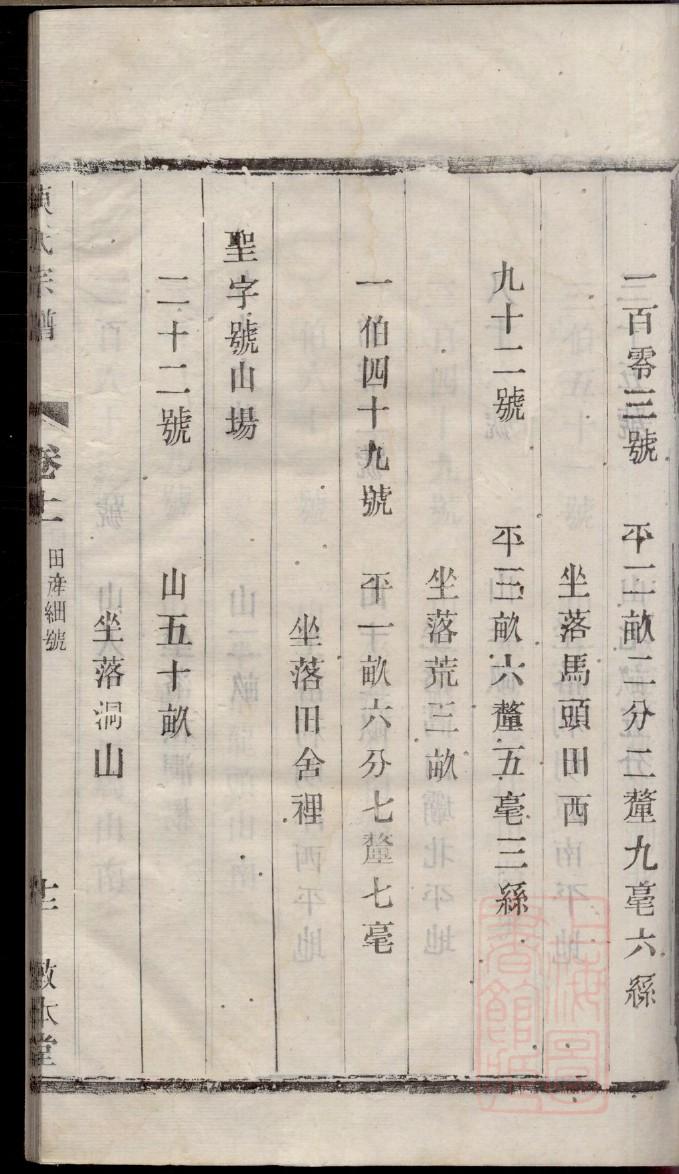 三百零三號　平二畝二分二釐九毫六絲
坐落馬頭田西
九十二號　平三畝六釐五毫三絲
坐落荒三畝
一伯四十九號　平一畝六分七釐七毫
坐落田舍裡
聖字號山場
二十二號　山五十畝
坐落洞山
陳氏宗譜　卷十一　田產細號　十二　敬本堂